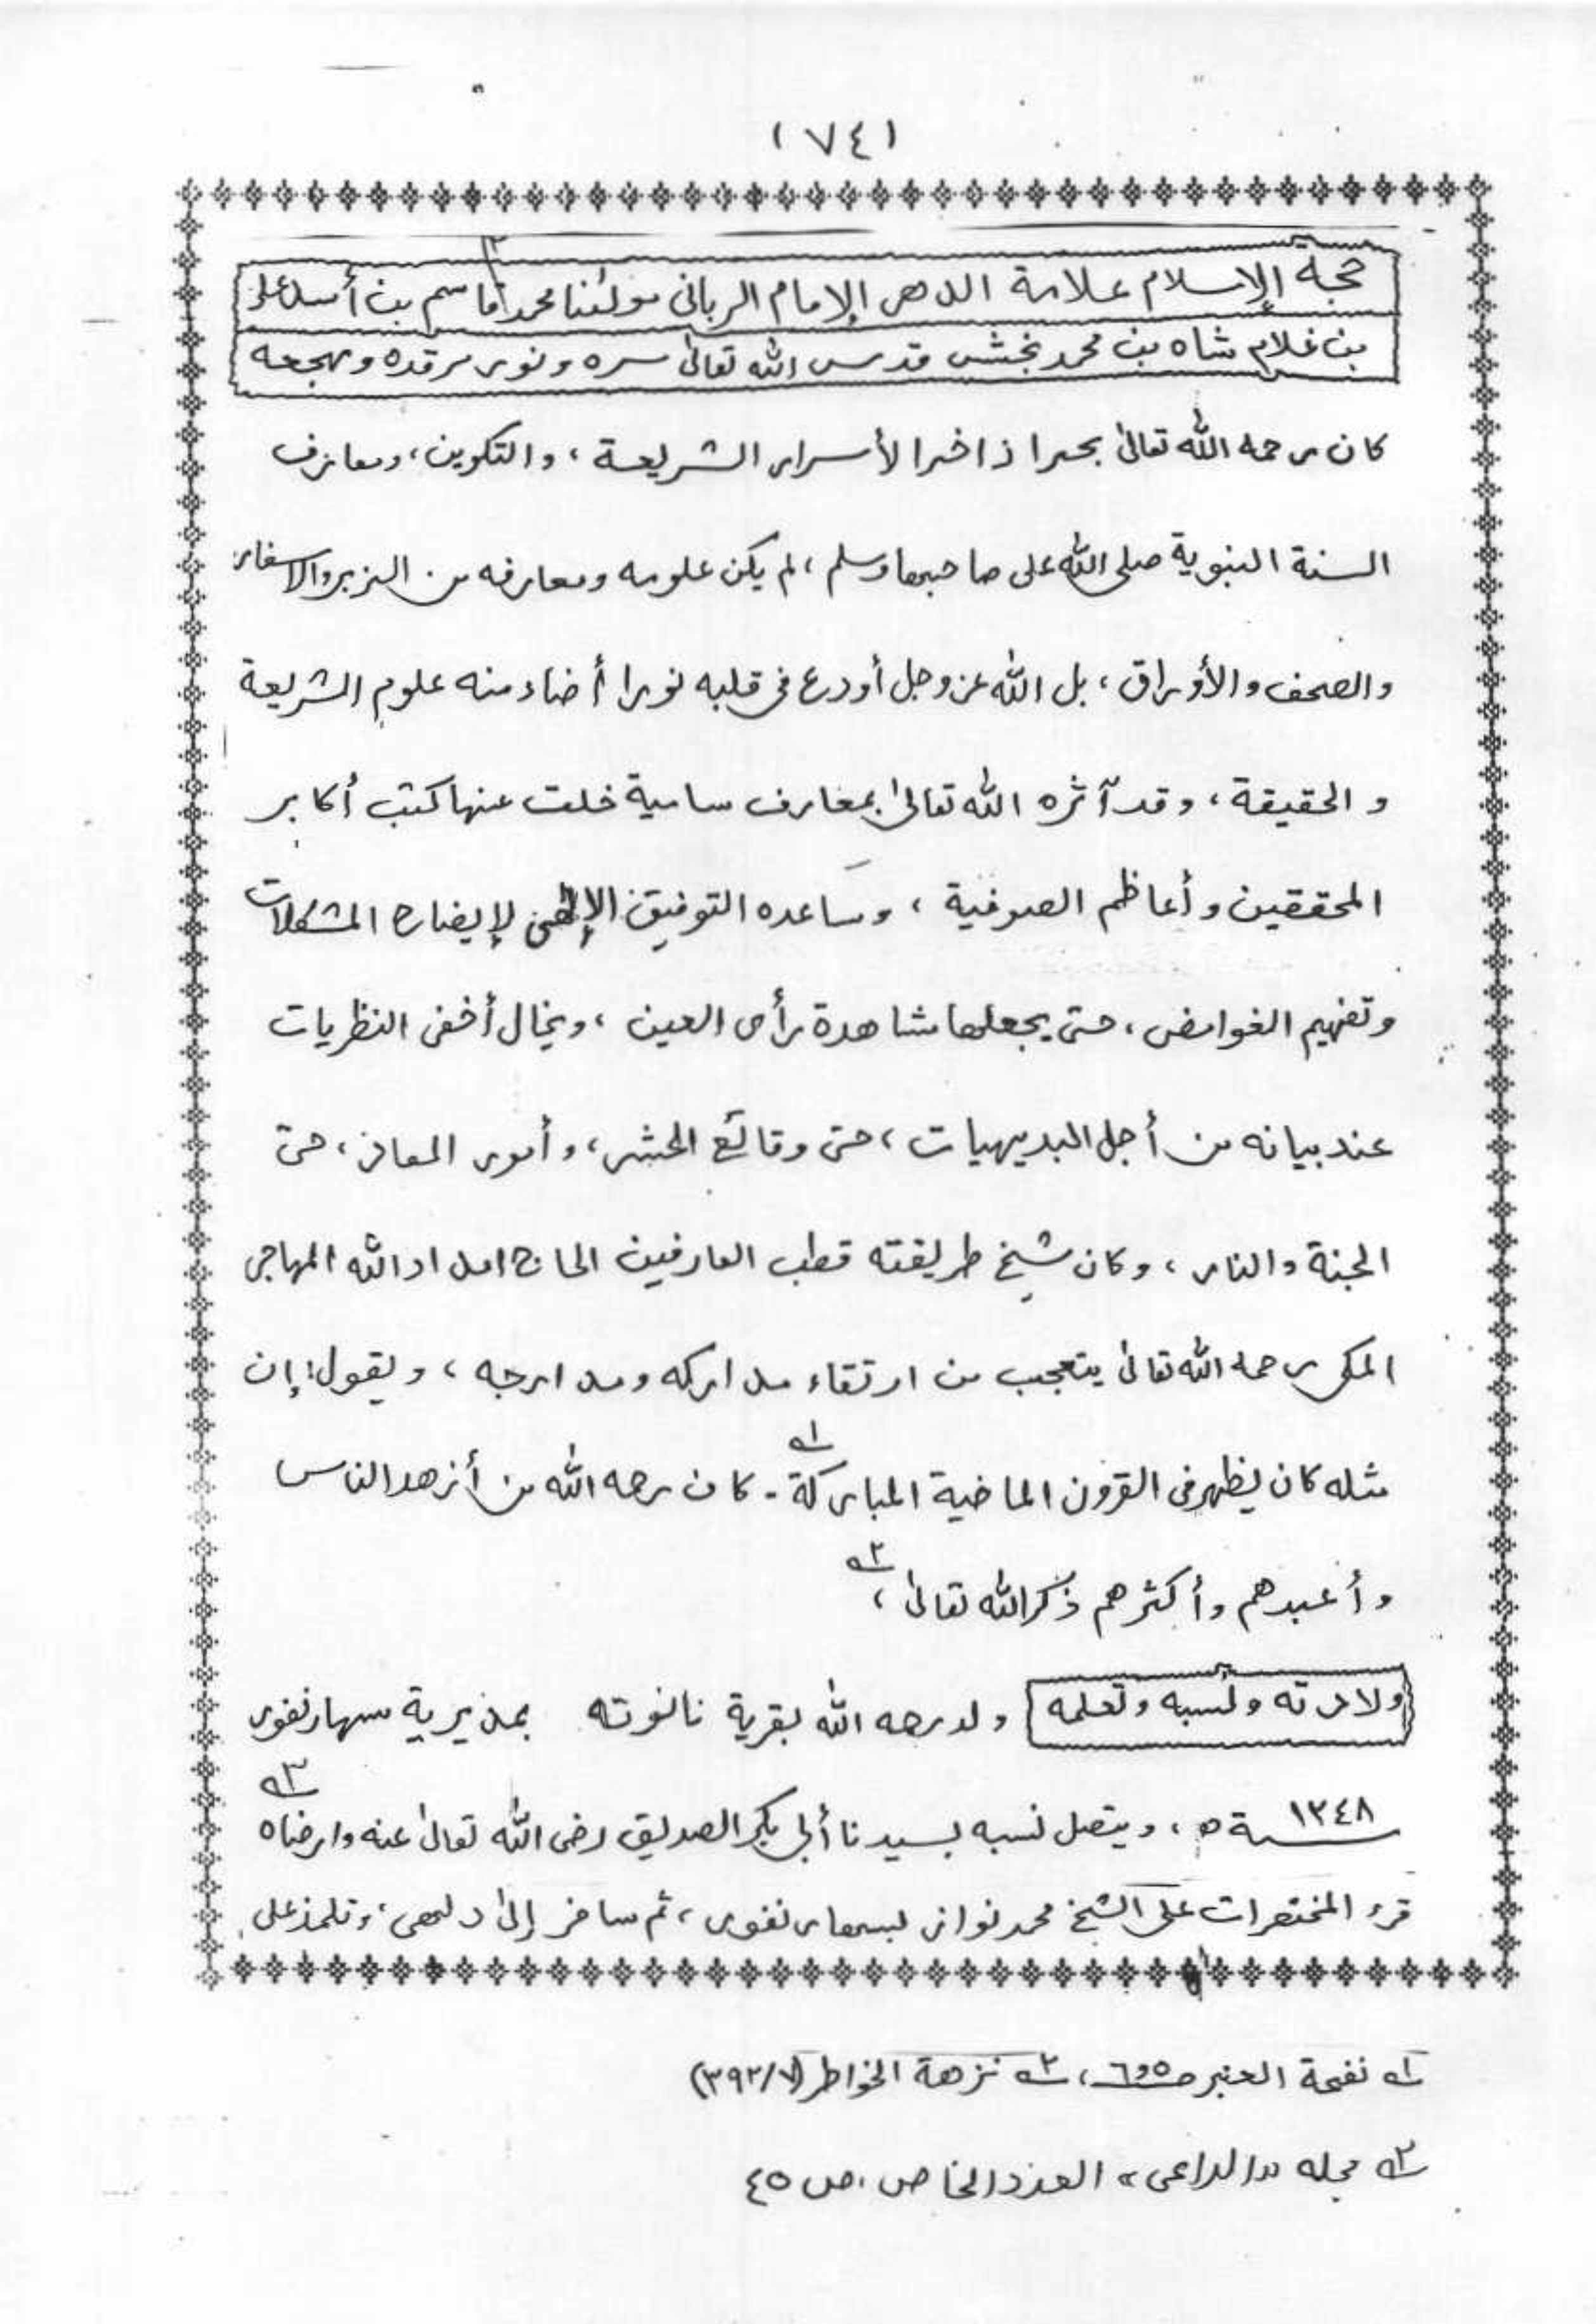 (٧٤)
حجة الإسلام علامة الدهر الإمام الرباني مولٰنا محمد قاسم بن أسد علی
بن غلام شاه بن محمد بخش قدس الله تعالیٰ سره ونور مرقده ومهجعه
كان رحمه الله تعالیٰ بحرا ذاخرا لأسرار الشريعة ، والتكوين ، ومعارف
السنة النبوية صلی الله علی صاحبها وسلم ، لم يكن علومه ومعارفه من الزبر والاسفار
والصحف والأوراق ، بل الله عز وجل أودع فی قلبه نورا أضاء منه علوم الشريعة
والحقيقة ، وقد آثره الله تعالیٰ بمعارف سامية خلت عنها كتب أكابر
المحققين وأعاظم الصوفية ، وساعده التوفيق الإلٰهی لإيضاح المشكلات
وتفهيم الغوامض ، حتی يجعلها مشاهدة رأی العين ، ويخال أخفی النظريات
عند بيانه من أجل البديهيات ، حتی وقائع الحشر ، وأمور المعاد ، حتی
الجنة والنار ، وكان شيخ طريقته قطب العارفين الحاج امداد الله المهاجر
المكی رحمه الله تعالیٰ يتعجب من ارتقاء مداركه ومدارجه ، ويقول : إن
مثله كان يظهر فی القرون الماضية المباركة ١ـه - كان رحمه الله من أزهد الناس
وأعبدهم وأكثرهم ذكر الله تعالیٰ ، ٢ـه
ولادته ونسبه وتعلمه ولد رحمه الله بقرية نانوته بمديرية سهارنفور
سنة ١٢٤٨ه ، ويتصل نسبه بسيدنا أبی بكر الصديق رضی الله تعالیٰ عنه وارضاه ٣ـه
قرء المختصرات علی الشيخ محمد نواز بسهارنفور ، ثم سافر إلیٰ دلهی ، وتلمذ علی
١ـه نفحة العنبر ص ٥و٦ ، ٢ـه نزهة الخواطر (٧/٣٩٢)
٣ـه مجله "الداعی" العدد الخاص ، ص ٤٥